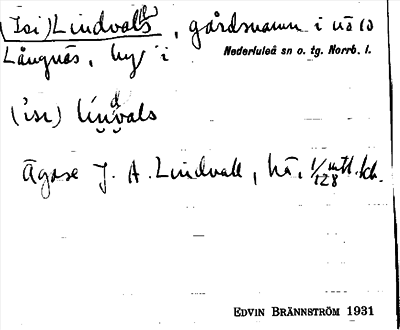 (Isi) Lindvals, gårdsnamn i nö 10
Långnäs, by i
Nederluleå sn o. tg. Norrb. l.
Ägare J. A. Lindvall, 1/128 mtl.
EDVIN BRÄNNSTRÖM 1931